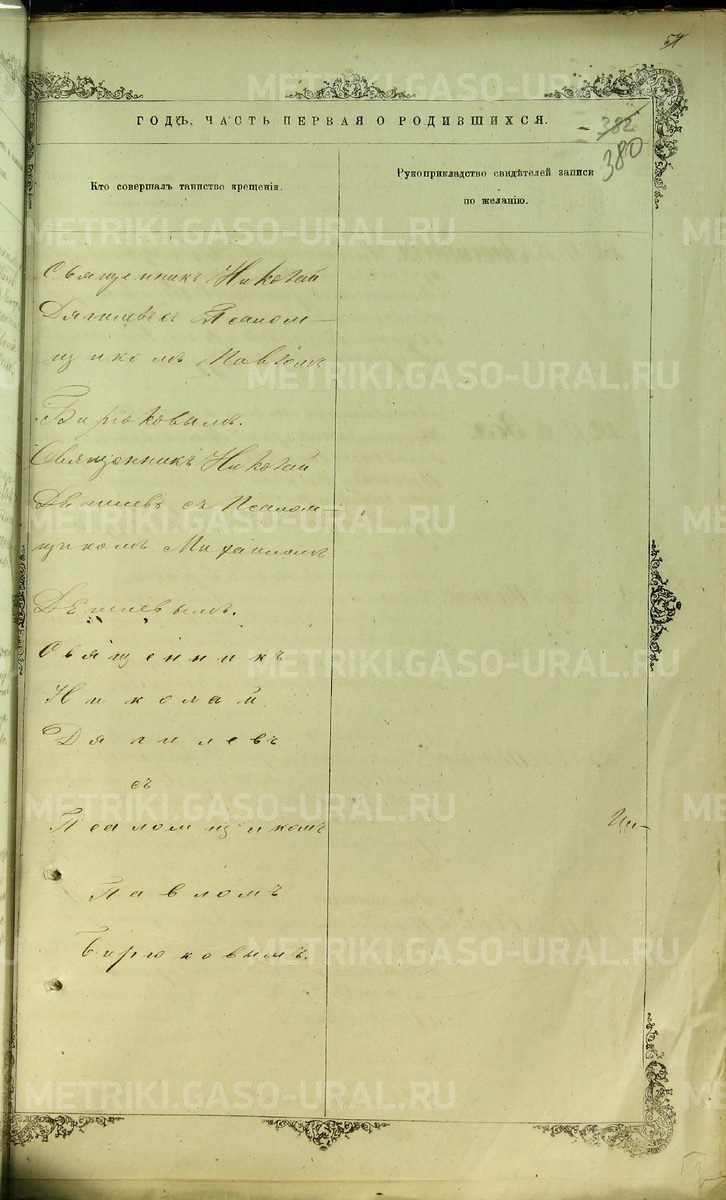 54
ГОДЪ, ЧАСТЬ ПЕРВАЯ О РОДИВШИХСЯ.
382
380
Кто совершалъ таинство крещенія.
Рукоприкладство свидѣтелей записи
по желанію.
Священникъ Николай
Дягилевъ съ Псалом-
щикомъ Павломъ
Бирюковымъ.
Священникъ Николай
Дягилевъ съ Псалом-
щикомъ Михаиломъ
Дягилевымъ.
Священникъ
Николай
Дягилевъ
съ
Псаломщикомъ
Павломъ
Бирюковымъ.
METRIKI.GASO-URAL.RU